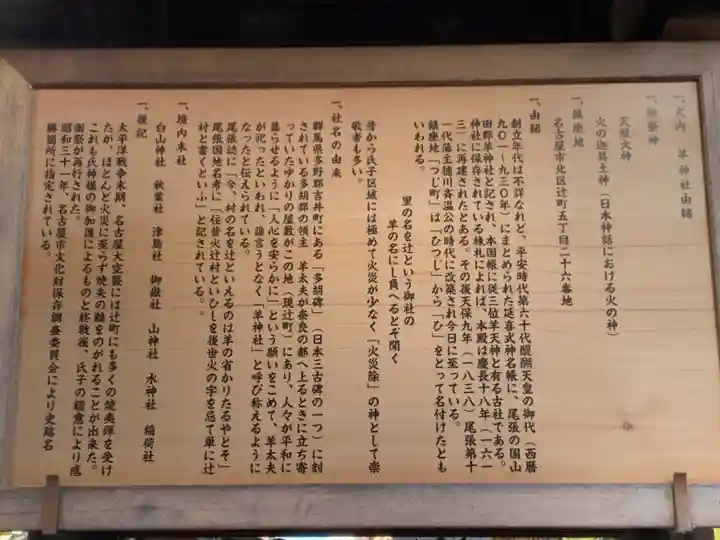 一、式内 羊神社由緒
一、御祭神
天照大神
火の迦具土神（日本神話における火の神）
一、鎮座地
名古屋市北区辻町五丁目二十六番地
一、由緒
創立年代は不詳なれど、平安時代第六十代醍醐天皇の御代（西暦
九〇一〜九三〇年）にまとめられた延喜式神名帳に、尾張の国山
田郡羊神社と記され、本国帳に従三位羊天神と有る古社である。
神社に保存されている棟札によれば、本殿は慶長十八年（一六一
三）に再建されたとある。その後天保九年（一八三八）尾張第十
一代藩主徳川斉温公の時代に改築され今日に至っている。
鎮座地「つじ町」は「ひつじ」から「ひ」をとって名付けたとも
いわれる。
里の名を辻という御社の
羊の名にし負へるとぞ聞く
昔から氏子区域には極めて火災が少なく「火災除」の神として崇
敬者も多い。
一、社名の由来
群馬県多野郡吉井町にある「多胡碑」（日本三古碑の一つ）に刻
されている多胡郡の領主 羊太夫が奈良の都へ上るときに立ち寄
っていたゆかりの屋敷がこの地（現辻町）にあり、人々が平和に
暮らせるように「人心を安らかに」という願いをこめて、羊太夫
が祀ったといわれ、誰言うとなく「羊神社」と呼び称えるように
なったと伝えられている。
尾張誌に「今、村の名を辻といえるのは羊の省かりたるやとぞ」
尾張国地名考に「往昔火辻村といひしを後世火の字を忌て単に辻
村と書くといふ」と記されている。
一、境内末社
白山神社 秋葉社 津島社 御嶽社 山神社 水神社 稲荷社
一、後記
太平洋戦争末期、名古屋大空襲には辻町にも多くの焼夷弾を受け
たが、ほとんど火災に至らず焼失の難をのがれることが出来た。
これも氏神様の御加護によるものと終戦後、氏子の総意により感
謝祭が再行された。
昭和三十一年、名古屋市文化財保存調査委員会により史蹟名
勝箇所に指定されている。